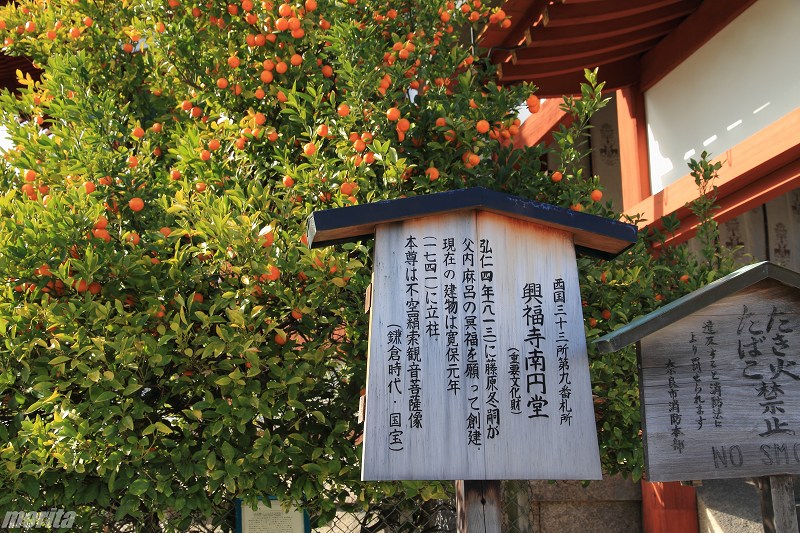 西国三十三所第九番札所
興福寺南円堂
(重要文化財)
弘仁四年(八一三)に藤原冬嗣が
父内麻呂の冥福を願って創建.
現在の建物は寛保元年
(一七四一)に立柱.
本尊は不空羂索観音菩薩像
(鎌倉時代・国宝)
たき火
たばこ
禁止
違反すると消防法に
より罰せられます
奈良市消防本部
NO SMO
morita